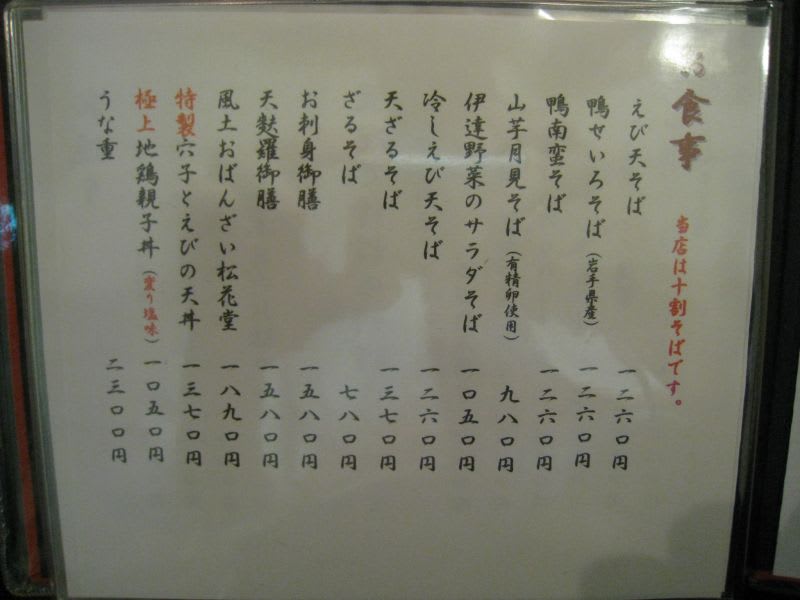 お食事
当店は十割そばです。
えび天そば 一二六〇円
鴨せいろそば(岩手県産) 一二六〇円
鴨南蛮そば 一二六〇円
山芋月見そば(有精卵使用) 九八〇円
伊達野菜のサラダそば 一〇五〇円
冷しえび天そば 一二六〇円
天ざるそば 一三七〇円
ざるそば 七八〇円
お刺身御膳 一五八〇円
天麩羅御膳 一五八〇円
風土おばんざい松花堂 一八九〇円
特製穴子とえびの天丼 一三七〇円
極上地鶏親子丼(変り塩味) 一〇五〇円
うな重 二三〇〇円